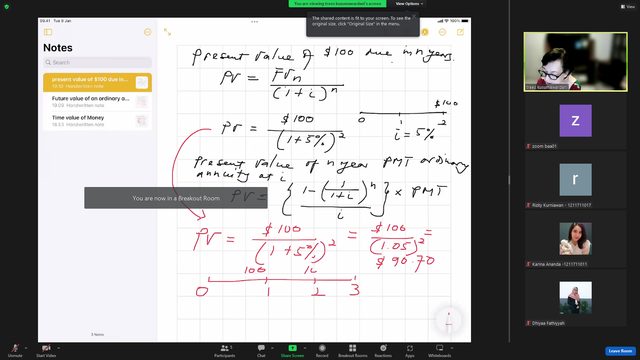 You are viewing
View Options
The shared content is fit to your screen. To see the
original size, click "Original Size" in View Options.
09.41 Tue 9 Jan
Notes
Search
present value of $100 due in...
Handwritten note
Future value of on ordinary a...
Handwritten note
Time value of Money
Handwritten note
3 Notes
present value of $100 due in n years.
PV = FVn / (1+i)^n
PV = $100 / (1+5%)^2
$100
0 1 2
i = 5%
Present value of n year PMT ordinary
annuity at i
You are now in a Breakout Room
PV = { 1 - (1/(1+i))^n / i } × PMT
PV = $100 / (1+5%)^2 = $100 / (1.05)^2 =
$90.70
100
0 1 2 3
zoom baa01
z
Rizky Kurniawan - 1211711017
r
Karina Ananda -1211711011
Dhiyaa Fathiyyah
Unmute
Start Video
Participants
Chat
Share Screen
Record
Breakout Rooms
Reactions
Apps
Whiteboards
Leave Room